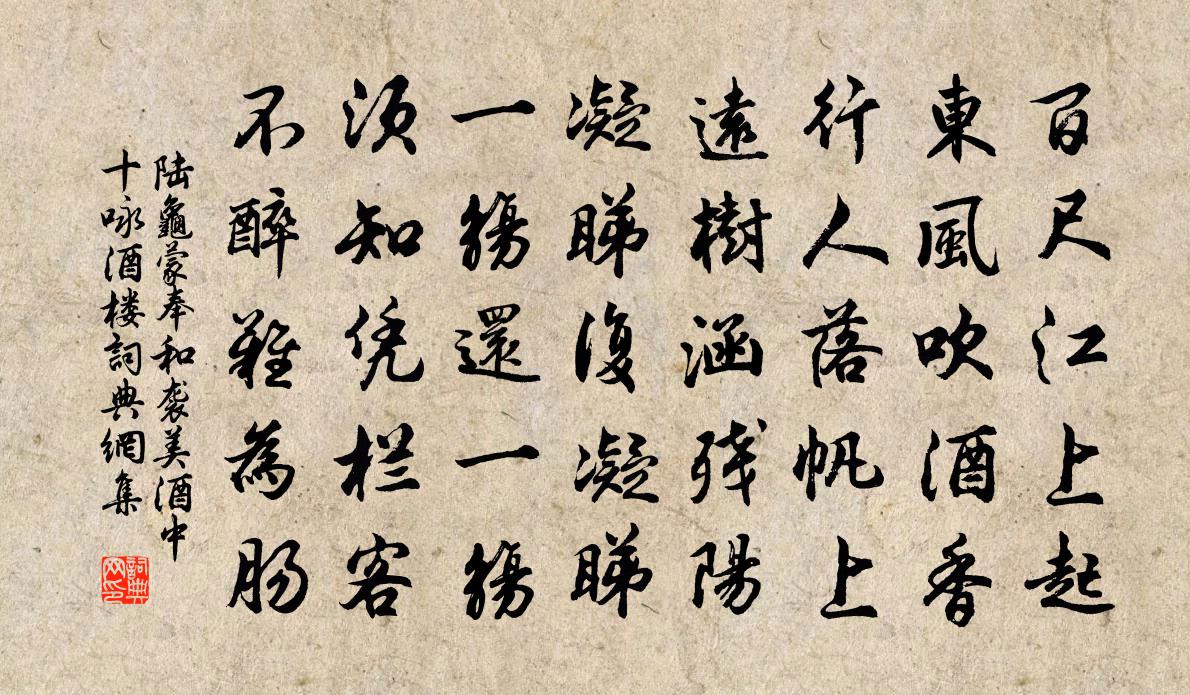 百尺江上起
東風吹酒香
行人落帆上
遠樹涵残陽
凝睇復凝睇
一觴還一觴
須知凭栏客
不醉難為腸
陆龜蒙奉和袭美酒中
十咏酒楼詞典網集
詞典
网印